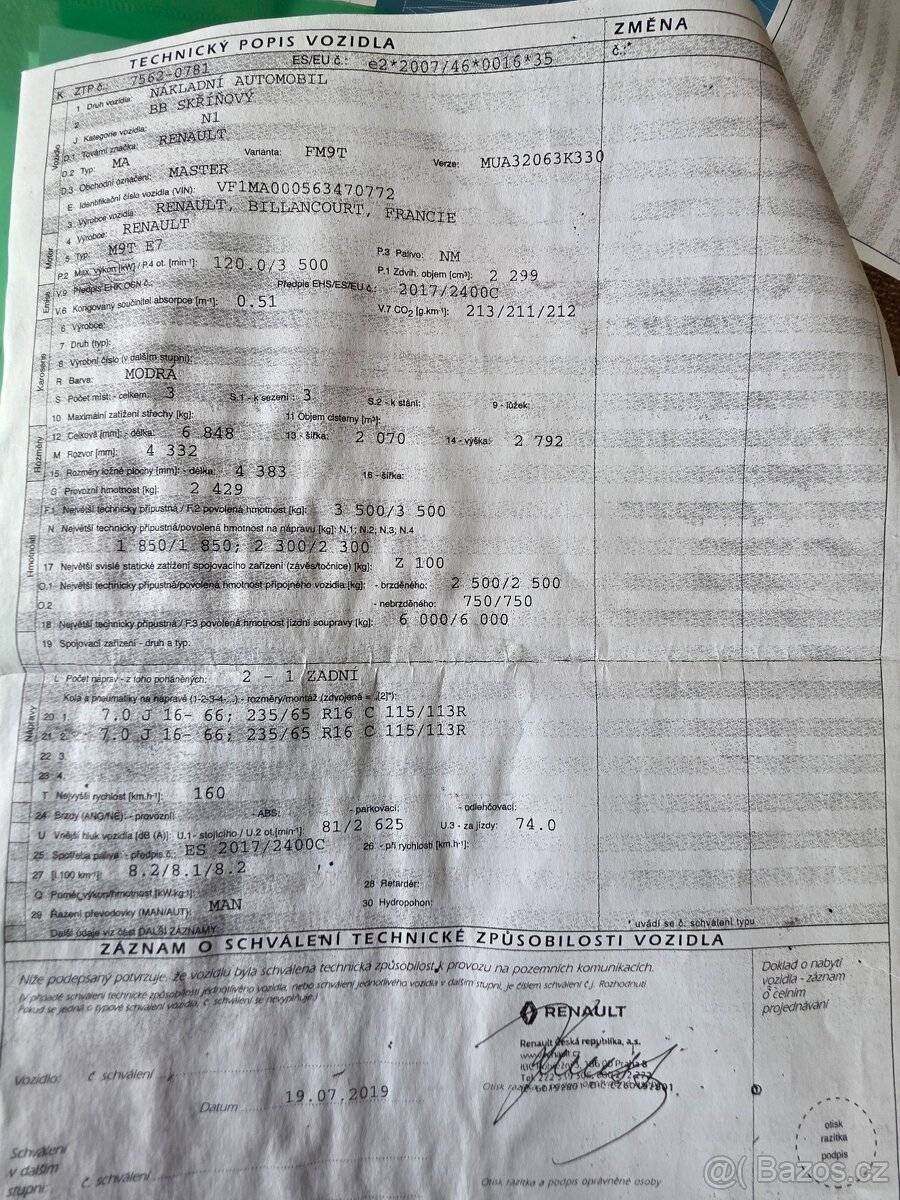 TECHNICKÝ POPIS VOZIDLA
ZMĚNA
K ZTP č.: 7562-0781 ES/EU č.: e2*2007/46*0016*35 č.:*
1 Druh vozidla: NÁKLADNÍ AUTOMOBIL
2 BB SKŘÍŇOVÝ
J Kategorie vozidla: N1
D.1 Tovární značka: RENAULT
D.2 Typ: MA Varianta: FM9T Verze: MUA32063K330
D.3 Obchodní označení: MASTER
E Identifikační číslo vozidla (VIN): VF1MA000563470772
3 Výrobce vozidla: RENAULT, BILLANCOURT, FRANCIE
4 Výrobce: RENAULT
5 Typ: M9T E7 P.3 Palivo: NM
P.2 Max. výkon [kW] / P.4 ot. [min-1]: 120.0/3 500 P.1 Zdvih. objem [cm³]: 2 299
V.9 Předpis EHK OSN č.: Předpis EHS/ES/EU č.: 2017/2400C
V.6 Korigovaný součinitel absorpce [m-1]: 0.51 V.7 CO2 [g.km-1]: 213/211/212
6 Výrobce:
7 Druh (typ):
8 Výrobní číslo (v dalším stupni):
R Barva: MODRÁ
S Počet míst - celkem: 3 S.1 - k sezení: 3 S.2 - k stání: 9 - lůžek:
10 Maximální zatížení střechy [kg]: 11 Objem cisterny [m³]:
12 Celková [mm] - délka: 6 848 13 - šířka: 2 070 14 - výška: 2 792
M Rozvor [mm]: 4 332
15 Rozměry ložné plochy [mm] - délka: 4 383 16 - šířka:
G Provozní hmotnost [kg]: 2 429
F.1 Největší technicky přípustná / F.2 povolená hmotnost [kg]: 3 500/3 500
N Největší technicky přípustná/povolená hmotnost na nápravu [kg]: N.1; N.2; N.3; N.4
1 850/1 850; 2 300/2 300
17 Největší svislé statické zatížení spojovacího zařízení (závěs/točnice) [kg]: Z 100
O.1 Největší technicky přípustná/povolená hmotnost přípojného vozidla [kg]: - brzděného: 2 500/2 500
O.2 - nebrzděného: 750/750
18 Největší technicky přípustná / F.3 povolená hmotnost jízdní soupravy [kg]: 6 000/6 000
19 Spojovací zařízení - druh a typ:
L Počet náprav - z toho poháněných: 2 - 1 ZADNÍ
Kola a pneumatiky na nápravě (1-2-3-4-...) - rozměry/montáž (zdvojená = „[2]"):
20 1. 7.0 J 16- 66; 235/65 R16 C 115/113R
21 2. 7.0 J 16- 66; 235/65 R16 C 115/113R
22 3.
23 4.
T Nejvyšší rychlost [km.h-1]: 160
24 Brzdy (ANO/NE): - provozní: - ABS: - parkovací: - odlehčovací:
U Vnější hluk vozidla [dB (A)]: U.1 - stojícího / U.2 ot.[min-1]: 81/2 625 U.3 - za jízdy: 74.0
25 Spotřeba paliva - předpis č.: ES 2017/2400C 26 - při rychlosti [km.h-1]:
27 [l.100 km-1]: 8.2/8.1/8.2
Q Poměr výkon/hmotnost [kW.kg-1]: 28 Retardér:
29 Řazení převodovky (MAN/AUT): MAN 30 Hydropohon:
Další údaje viz část DALŠÍ ZÁZNAMY * uvádí se č. schválení typu
ZÁZNAM O SCHVÁLENÍ TECHNICKÉ ZPŮSOBILOSTI VOZIDLA
Níže podepsaný potvrzuje, že vozidlu byla schválena technická způsobilost k provozu na pozemních komunikacích.
(V případě schválení technické způsobilosti jednotlivého vozidla, nebo schválení jednotlivého vozidla v dalším stupni, je číslem schválení č.j. Rozhodnutí.
Pokud se jedná o typové schválení vozidla, č. schválení se nevyplňuje.)
Doklad o nabytí
vozidla - záznam
o celním
projednávání
RENAULT
Renault Česká republika, a.s.
Vozidlo: č. schválení
Datum 19.07.2019
otisk
razítka
podpis
Schválení
v dalším
stupni: č. schválení
Otisk razítka a podpis oprávněné osoby
@( Bazos.cz